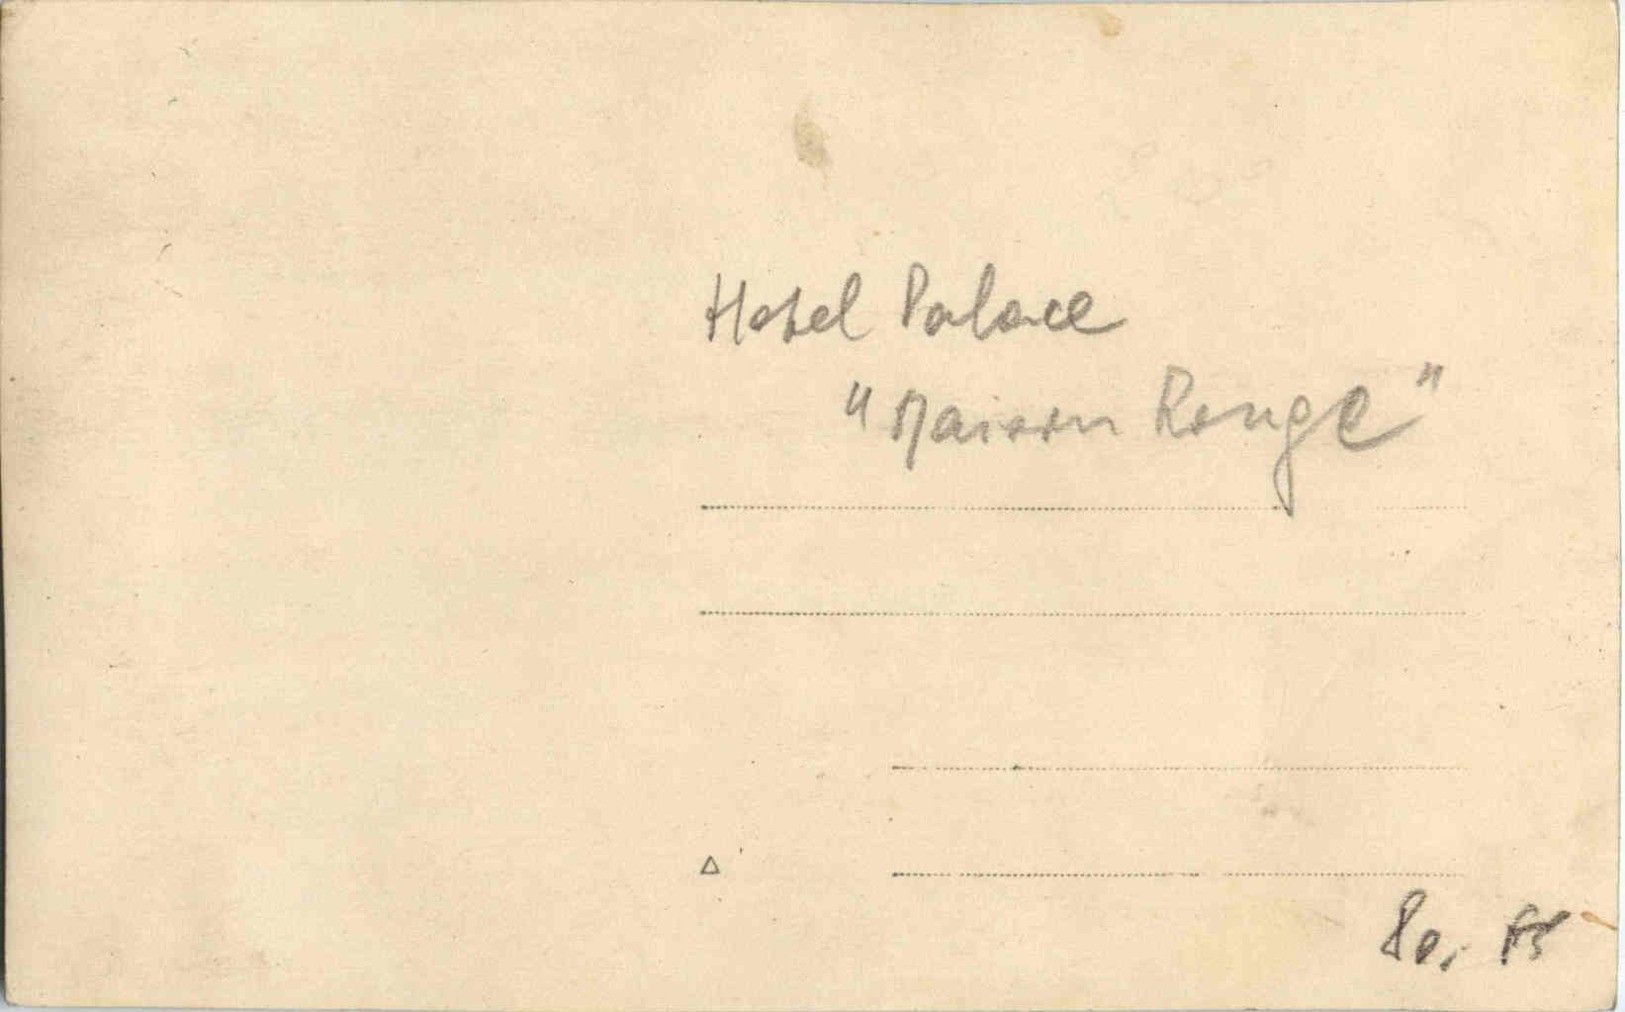 Hotel Palace
"Maison Rouge"
80,